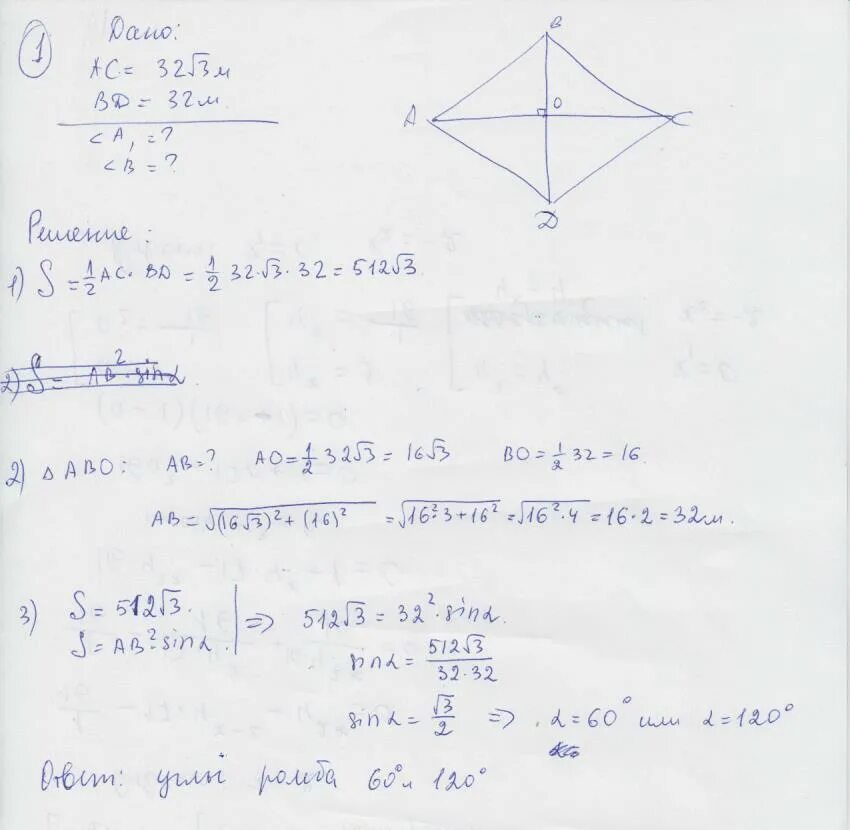 1
Дано:
AC = 32√3 м
BD = 32 м.
∠A, = ?
∠B = ?
B
A
O
C
D
Решение:
1) S = 1/2 AC · BD = 1/2 32·√3·32 = 512√3
2) S = AB² · sinα
2) △ABO: AB = ? AO = 1/2 32√3 = 16√3 BO = 1/2 32 = 16.
AB = √((16√3)² + (16)²) = √(16²·3 + 16²) = √(16²·4) = 16·2 = 32 м.
3) S = 512√3.
S = AB²·sinα.
⇒ 512√3 = 32²·sinα.
sinα = 512√3/32·32
sinα = √3/2 ⇒ α = 60° или α = 120°
Ответ: углы ромба 60° и 120°